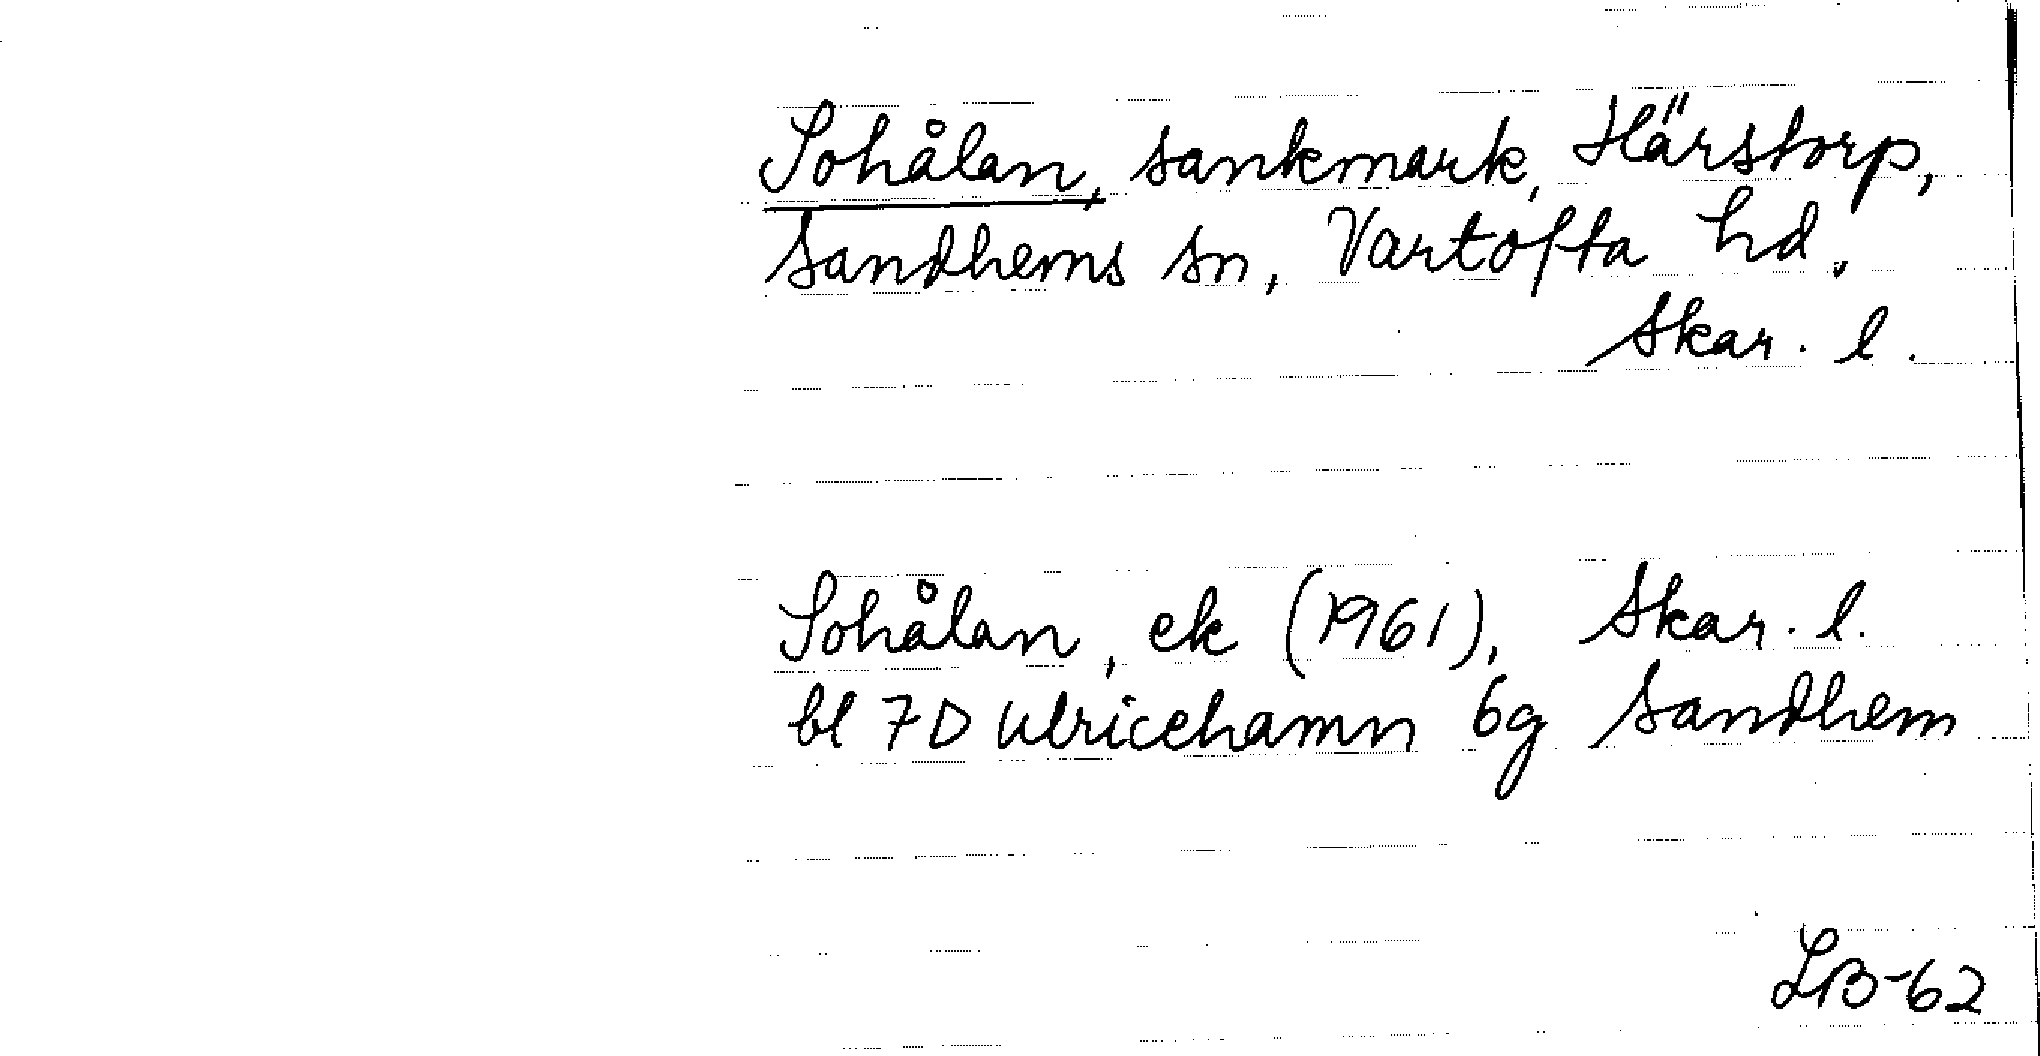 Sohålan, sankmark, Härstorp,
Sandhems sn, Vartofta hd.
Skar. l.
Sohålan, ek (1961), Skar. l.
bl 7D Ulricehamn 6g Sandhem
LB-62